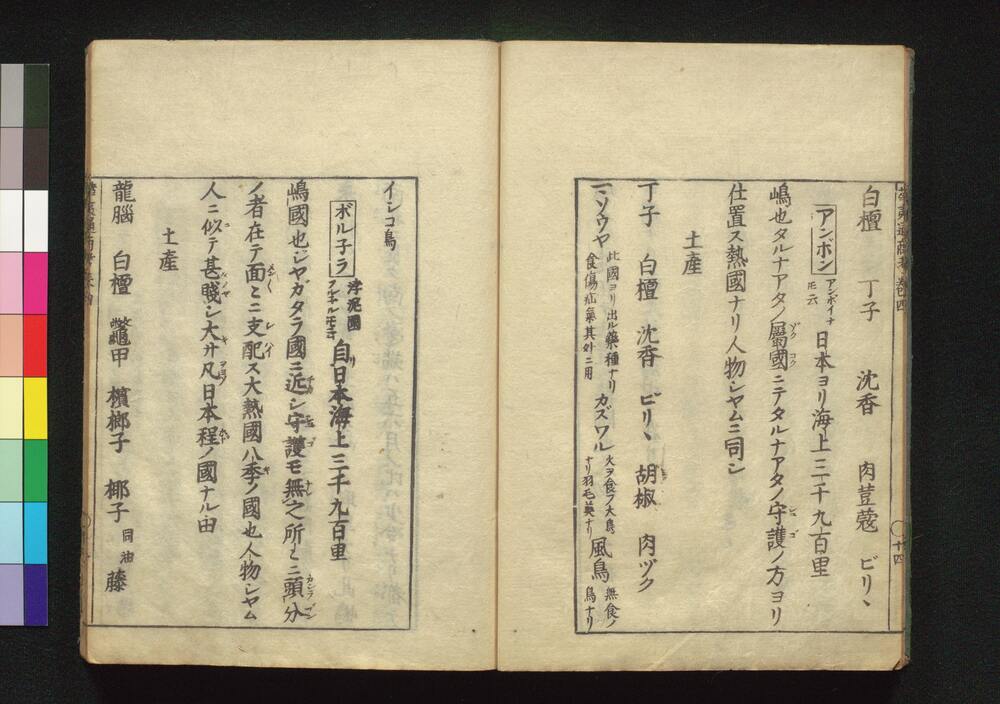 白檀 丁子 沈香 肉荳蔲 ビリヽ
アンボン アンボイナ トモ云 日本ヨリ海上三千九百里
嶋也タルナアタノ屬國ニテタルナアタノ守護ノ方ヨリ
仕置ス熱國ナリ人物シヤムニ同シ
土産
丁子 白檀 沈香 ビリヽ 胡椒 肉ヅク
ミソウヤ 此國ヨリ出ル藥種ナリ 食傷疝氣其外ニ用 カズワル 火ヲ食フ大鳥ナリ羽毛美ナリ 風鳥 無食ノ鳥ナリ
十四
インコ鳥
ボル子ラ 浡泥國 自日本海上三千九百里
嶋國也ジヤガタラ國ニ近シ守護モ無之所々ニ頭分
ノ者在テ面々ニ支配ス大熱國八季ノ國也人物シヤム
人ニ似テ甚賤シ大サ凡日本程ノ國ナル由
土産
龍腦 白檀 鼈甲 檳榔子 椰子 同油 藤